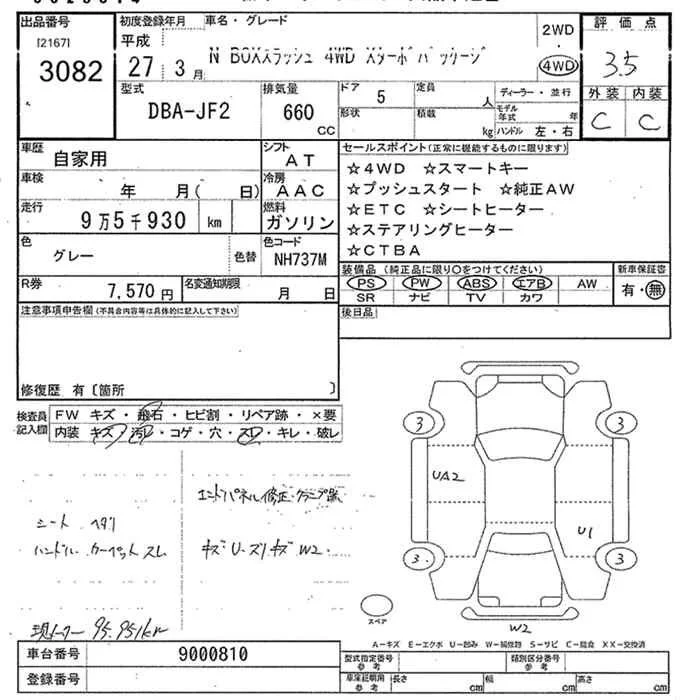 出品番号
[2167]
3082
初度登録年月
平成
27 3月
車名・グレード
N BOXスラッシュ 4WD Xターボパッケージ
2WD
4WD
評価点
3.5
外装 内装
C C
型式
DBA-JF2
排気量
660
CC
ドア
5
定員
人
形状
積載
kg
ディーラー・並行
モデル年式 年
ハンドル 左・右
車歴
自家用
シフト
AT
車検
年 月( 日)
冷房
AAC
走行
9万5千930 km
燃料
ガソリン
色
グレー
色替
色コード
NH737M
R券
7,570円
名変通知期限
月 日
セールスポイント(正常に機能するものに限ります)
☆4WD ☆スマートキー
☆プッシュスタート ☆純正AW
☆ETC ☆シートヒーター
☆ステアリングヒーター
☆CTBA
装備品(純正品に限り○をつけてください)
PS PW ABS エアB AW
SR ナビ TV カワ
新車保証書
有・無
後日品
注意事項申告欄(不具合内容等は具体的に記入して下さい)
修復歴 有〔箇所 〕
検査員記入欄
FW キズ・飛石・ヒビ割・リペア跡・×要
内装 キズ・汚レ・コゲ・穴・スレ・キレ・破レ
エンドパネル修正・クランプ跡
シート ヘタリ
ハンドル カーペット スレ
キズ U・ズリキズ W2.
現メーター 95.951km
3
3
UA2
U1
3
3
スペア
W2
A−キズ E−エクボ U−凹み W−補修跡 S−サビ C−腐食 XX−交換済
車台番号
9000810
登録番号
型式指定番号
参考
類別区分番号
参考
車庫証明用
参考
長さ cm
幅 cm
高さ cm